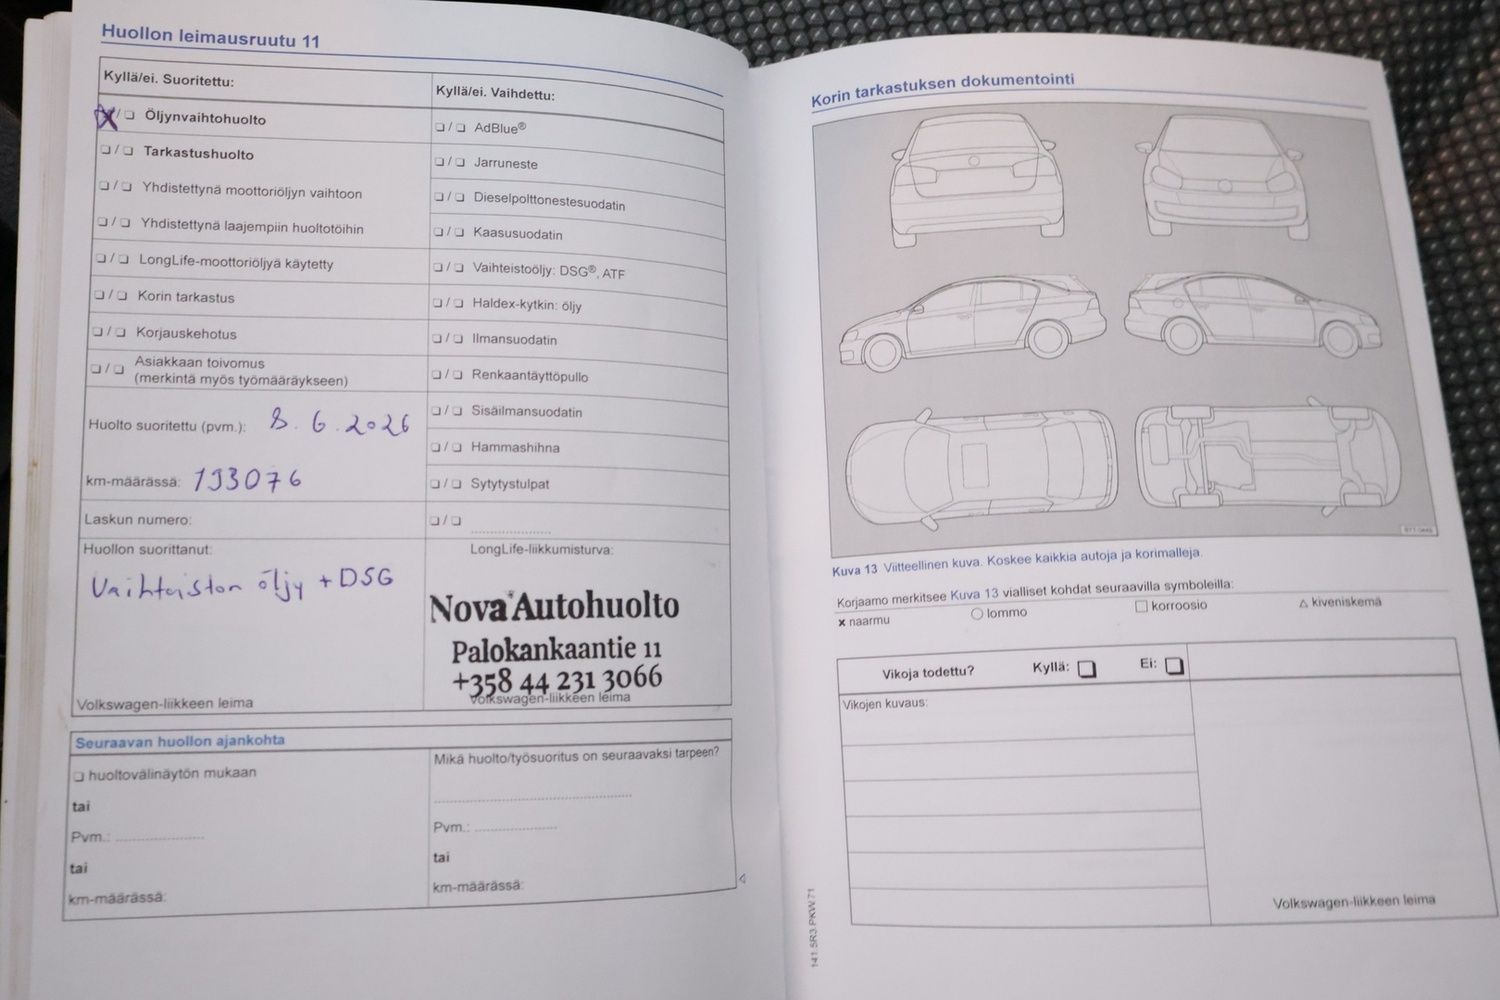 Huollon leimausruutu 11
Kyllä/ei. Suoritettu:
X/❏ Öljynvaihtohuolto
❏/❏ Tarkastushuolto
❏/❏ Yhdistettynä moottoriöljyn vaihtoon
❏/❏ Yhdistettynä laajempiin huoltotöihin
❏/❏ LongLife-moottoriöljyä käytetty
❏/❏ Korin tarkastus
❏/❏ Korjauskehotus
❏/❏ Asiakkaan toivomus
(merkintä myös työmääräykseen)
Huolto suoritettu (pvm.): 8.6.2026
km-määrässä: 193076
Laskun numero:
Huollon suorittanut:
Vaihteiston öljy + DSG
Volkswagen-liikkeen leima
Kyllä/ei. Vaihdettu:
❏/❏ AdBlue®
❏/❏ Jarruneste
❏/❏ Dieselpolttonestesuodatin
❏/❏ Kaasusuodatin
❏/❏ Vaihteistoöljy: DSG®, ATF
❏/❏ Haldex-kytkin: öljy
❏/❏ Ilmansuodatin
❏/❏ Renkaantäyttöpullo
❏/❏ Sisäilmansuodatin
❏/❏ Hammashihna
❏/❏ Sytytystulpat
❏/❏ ....................
LongLife-liikkumisturva:
Nova Autohuolto
Palokankaantie 11
+358 44 231 3066
Volkswagen-liikkeen leima
Seuraavan huollon ajankohta
❏ huoltovälinäytön mukaan
tai
Pvm.: ....................
tai
km-määrässä:
Mikä huolto/työsuoritus on seuraavaksi tarpeen?
..................................................
Pvm.: ....................
tai
km-määrässä:
Korin tarkastuksen dokumentointi
Kuva 13 Viitteellinen kuva. Koskee kaikkia autoja ja korimalleja.
Korjaamo merkitsee Kuva 13 vialliset kohdat seuraavilla symboleilla:
x naarmu ○ lommo □ korroosio △ kiveniskemä
Vikoja todettu? Kyllä: ❏ Ei: ❏
Vikojen kuvaus:
Volkswagen-liikkeen leima
141.5R3.PKW.71